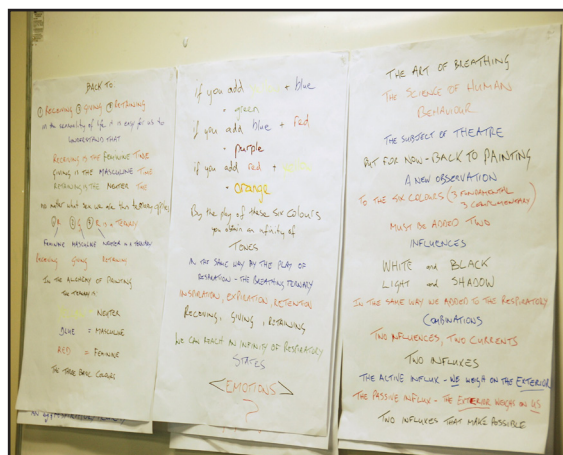 BACK TO
① RECEIVING ② GIVING ③ RETAINING
in the of life it is easy for us to
UNDERSTAND THAT
RECEIVING IS THE FEMININE TIME
GIVING IS THE MASCULINE TIME
RETAINING IS THE NEUTER
NO MATTER WHAT we this TERNARY applies
① R ② G ③ R is a TERNARY
FEMININE MASCULINE NEUTER is a TERNARY
RECEIVING GIVING RETAINING
IN THE ALCHEMY OF PAINTING
THE TERNARY IS
NEUTER
BLUE = MASCULINE
RED = FEMININE
THE THREE BASIC COLOURS
if you add + blue
= green
if you add blue + red
= purple
if you add red +
= orange
By the play of these six colours
you obtain an infinity of
TONES
IN THE SAME WAY BY THE PLAY OF
RESPIRATION - THE BREATHING TERNARY
INSPIRATION, EXPIRATION, RETENTION
RECEIVING, GIVING, RETAINING
WE CAN REACH AN INFINITY OF RESPIRATORY
STATES
<EMOTIONS>
?
THE ART OF BREATHING
THE SCIENCE OF HUMAN
BEHAVIOUR
THE SUBJECT OF THEATRE
BUT FOR NOW - BACK TO PAINTING
A NEW OBSERVATION
TO THE SIX COLOURS (3 FUNDAMENTAL
3 COMPLIMENTARY)
MUST BE ADDED TWO
INFLUENCES
WHITE and BLACK
LIGHT and SHADOW
IN THE SAME WAY WE ADDED TO THE RESPIRATORY
COMBINATIONS
TWO INFLUENCES, TWO CURRENTS
TWO INFLUXES
THE ACTIVE INFLUX - WE WEIGH ON THE EXTERIOR
THE PASSIVE INFLUX - THE EXTERIOR WEIGHS ON US
TWO INFLUXES THAT MAKE POSSIBLE